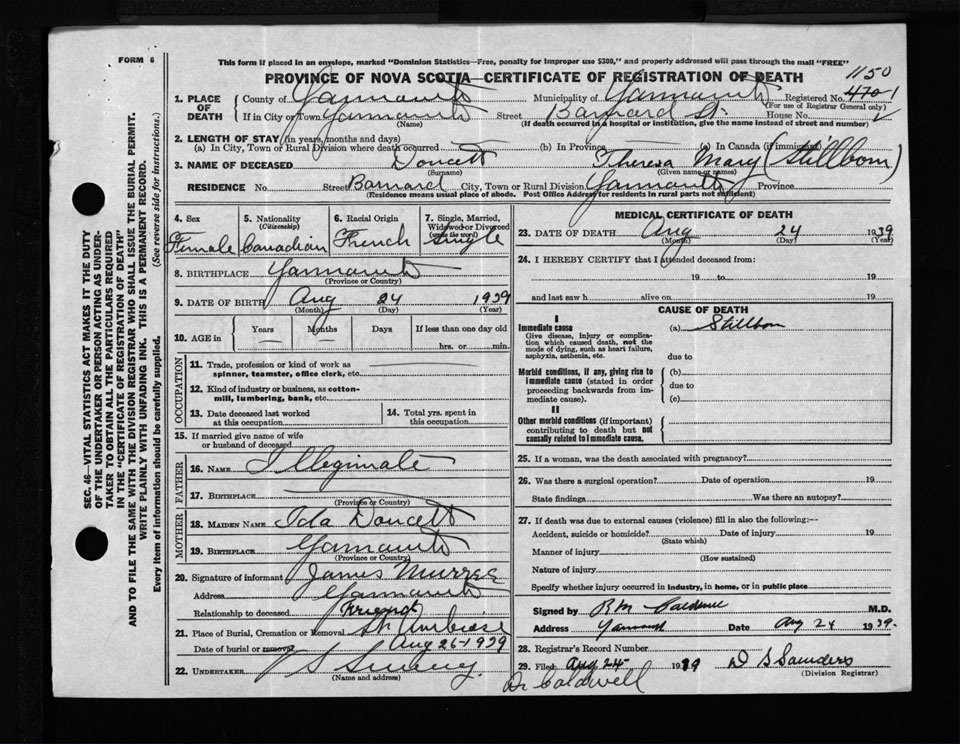 FORM 6
This form if placed in an envelope, marked "Dominion Statistics—Free, penalty for improper use $300," and properly addressed will pass through the mail "FREE"
PROVINCE OF NOVA SCOTIA—CERTIFICATE OF REGISTRATION OF DEATH
1150
1. PLACE OF DEATH County of Yarmouth Municipality of Yarmouth Registered No. 4701
(For use of Registrar General only)
If in City or Town Yarmouth Street Barnard St. House No.
(Name) (If death occurred in a hospital or institution, give the name instead of street and number)
2. LENGTH OF STAY (in years, months and days)
(a) In City, Town or Rural Division where death occurred (b) In Province (c) In Canada (if immigrant)
3. NAME OF DECEASED Doucett Theresa Mary (Stillborn)
(Surname) (Given name or names)
RESIDENCE No. Street Barnard City, Town or Rural Division Yarmouth Province
(Residence means usual place of abode. Post Office Address for residents in rural parts not sufficient)
4. Sex 5. Nationality (Citizenship) 6. Racial Origin 7. Single, Married, Widowed or Divorced (write the word)
Female Canadian French Single
8. BIRTHPLACE Yarmouth
(Province or Country)
9. DATE OF BIRTH Aug 24 1939
(Month) (Day) (Year)
10. AGE in Years Months Days If less than one day old
— — hrs. or min.
OCCUPATION
11. Trade, profession or kind of work as spinner, teamster, office clerk, etc.
12. Kind of industry or business, as cotton-mill, lumbering, bank, etc.
13. Date deceased last worked at this occupation
14. Total yrs. spent in this occupation
15. If married give name of wife or husband of deceased
FATHER
16. Name Illegimate
17. Birthplace
(Province or Country)
MOTHER
18. Maiden Name Ida Doucett
19. Birthplace Yarmouth
(Province or Country)
20. Signature of informant James
Address Yarmouth
Relationship to deceased Friend
21. Place of Burial, Cremation or Removal St. Ambrose
Date of burial or removal Aug 26-1939
22. UNDERTAKER V S Sweeny
(Name and address)
MEDICAL CERTIFICATE OF DEATH
23. DATE OF DEATH Aug 24 1939
(Month) (Day) (Year)
24. I HEREBY CERTIFY that I attended deceased from:
19 to 19
and last saw h alive on 19
CAUSE OF DEATH
I
Immediate cause (a) Stillborn
Give disease, injury or complication which caused death, not the mode of dying, such as heart failure, asphyxia, asthenia, etc.
due to
Morbid conditions, if any, giving rise to immediate cause (stated in order proceeding backwards from immediate cause).
(b)
due to
(c)
II
Other morbid conditions (if important) contributing to death but not causally related to immediate cause.
25. If a woman, was the death associated with pregnancy?
26. Was there a surgical operation? Date of operation 19
State findings Was there an autopsy?
27. If death was due to external causes (violence) fill in also the following:—
Accident, suicide or homicide? Date of injury 19
(State which)
Manner of injury
(How sustained)
Nature of injury
Specify whether injury occurred in industry, in home, or in public place
Signed by R M Caldwell M.D.
Address Yarmouth Date Aug 24 1939.
28. Registrar's Record Number
29. Filed Aug 24 1939 D S Saunders
(Division Registrar)
Dr Caldwell
SEC. 46—VITAL STATISTICS ACT MAKES IT THE DUTY
OF THE UNDERTAKER OR PERSON ACTING AS UNDER-
TAKER TO OBTAIN ALL THE PARTICULARS REQUIRED
IN THE "CERTIFICATE OF REGISTRATION OF DEATH"
AND TO FILE THE SAME WITH THE DIVISION REGISTRAR WHO SHALL ISSUE THE BURIAL PERMIT.
WRITE PLAINLY WITH UNFADING INK. THIS IS A PERMANENT RECORD.
Every item of information should be carefully supplied. (See reverse side for instructions.)